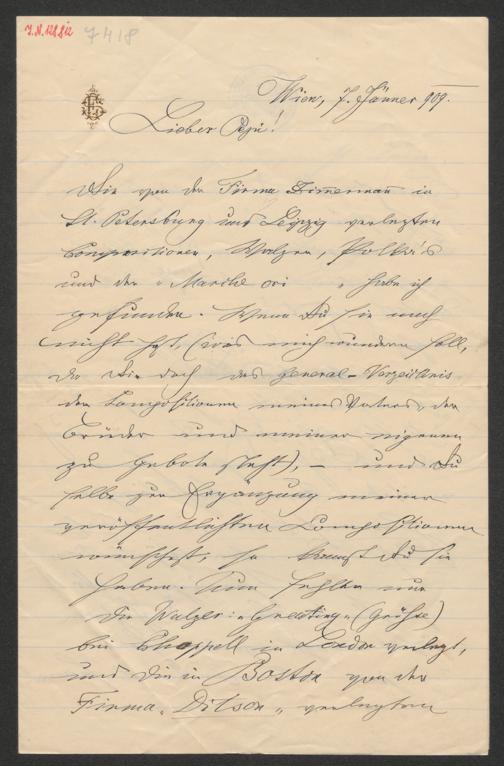 J.N. 128.812
7418
Wien, 7. Jänner 909.
Lieber Pepi!
Die von der Firma Zimmermann in
St. Petersburg und Leipzig verlegten
Compositionen, Walzer, Polka's
und den „Marche ori " habe ich
gefunden. Wenn Du sie noch
nicht hast (was mich wundern soll,
da Dir doch das general-Verzeichnis
der Compositionen meines Vaters, der
Brüder und meiner eigenen
zu Gebote steht), – und Du
selbe zur Ergänzung meiner
veröffentlichten Compositionen
wünschest, so kannst Du sie
haben. Nun fehlen nur
die Walzer: „Greeting" (Grüße)
bei Chappell in London verlegt,
und die in Boston von der
Firma „Ditson" verlegten